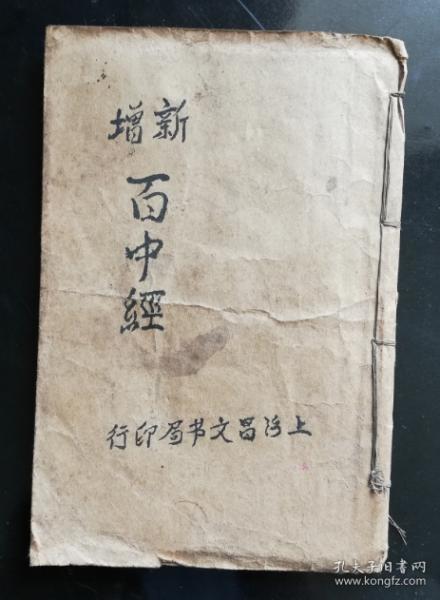 新增
百中經
上海昌文书局印行
孔夫子旧书网
www.kongfz.com